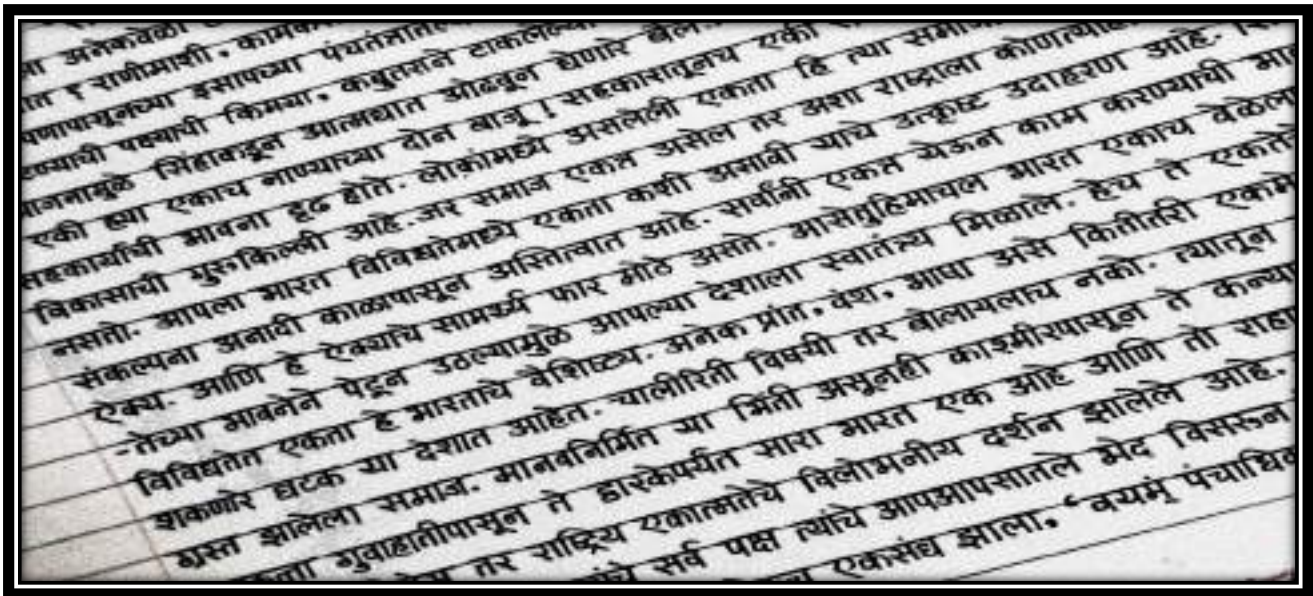 ा अनेकवेळी
ात १ राणीमाशी, कामक
पणापासूनच्या इसापच्या पंचतंत्रातल
रण्याची पक्ष्याची किमया, कबुतराने टाकलेल्या
ाजनामुळे सिंहाकडून आत्मघात ओढवून घेणारे बैल.
एकी ह्या एकाच नाण्याच्या दोन बाजू ! सहकारातूनच एकी
सहकार्याची भावना दृढ होते. लोकांमध्ये असलेली एकता हि त्या समाज
विकासाची गुरुकिल्ली आहे. जर समाज एकत्र असेल तर अशा राष्ट्राला कोणत्याह
नसतो. आपला भारत विविधतेमध्ये एकता कशी असावी याचे उत्कृष्ट उदाहरण आहे.
संकल्पना अनादी काळापासून अस्तित्वात आहे. सर्वांनी एकत्र येऊन काम करण्याची भा
ऐक्य. आणि हे ऐक्याचे सामर्थ्य फार मोठे असते. आसेतुहिमाचल भारत एकाच वेळेला
-तेच्या भावनेने पेटून उठल्यामुळे आपल्या देशाला स्वातंत्र्य मिळाले. हेच ते एकते
विविधतेत एकता हे भारताचे वैशिष्ट्य. अनेक प्रांत, वंश, भाषा असे कितीतरी एकमे
शकणारे घटक या देशात आहेत. चालीरिती विषयी तर बोलायलाच नको. त्यातून
ग्रस्त झालेला समाज. मानवनिर्मित या भिंती असूनही काश्मीरपासून ते कन्या
गुवाहातीपासून ते द्वारकेपर्यंत सारा भारत एक आहे आणि तो राहा
तर राष्ट्रिय एकात्मतेचे विलोभनीय दर्शन झालेले आहे.
ांचे सर्व पक्ष त्यांचे आपआपसातले भेद विसरून
एकसंध झाला. ‘वयम् पंचाधिक